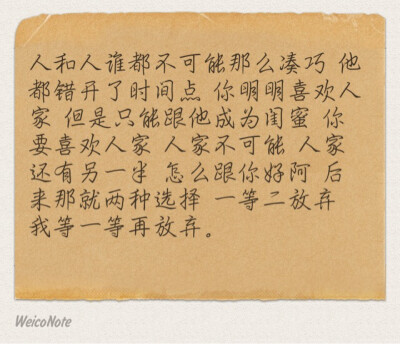 人和人谁都不可能那么凑巧 他
都错开了时间点 你明明喜欢人
家 但是只能跟他成为闺蜜 你
要喜欢人家 人家不可能 人家
还有另一半 怎么跟你好阿 后
来那就两种选择 一等二放弃
我等一等再放弃。
WeicoNote